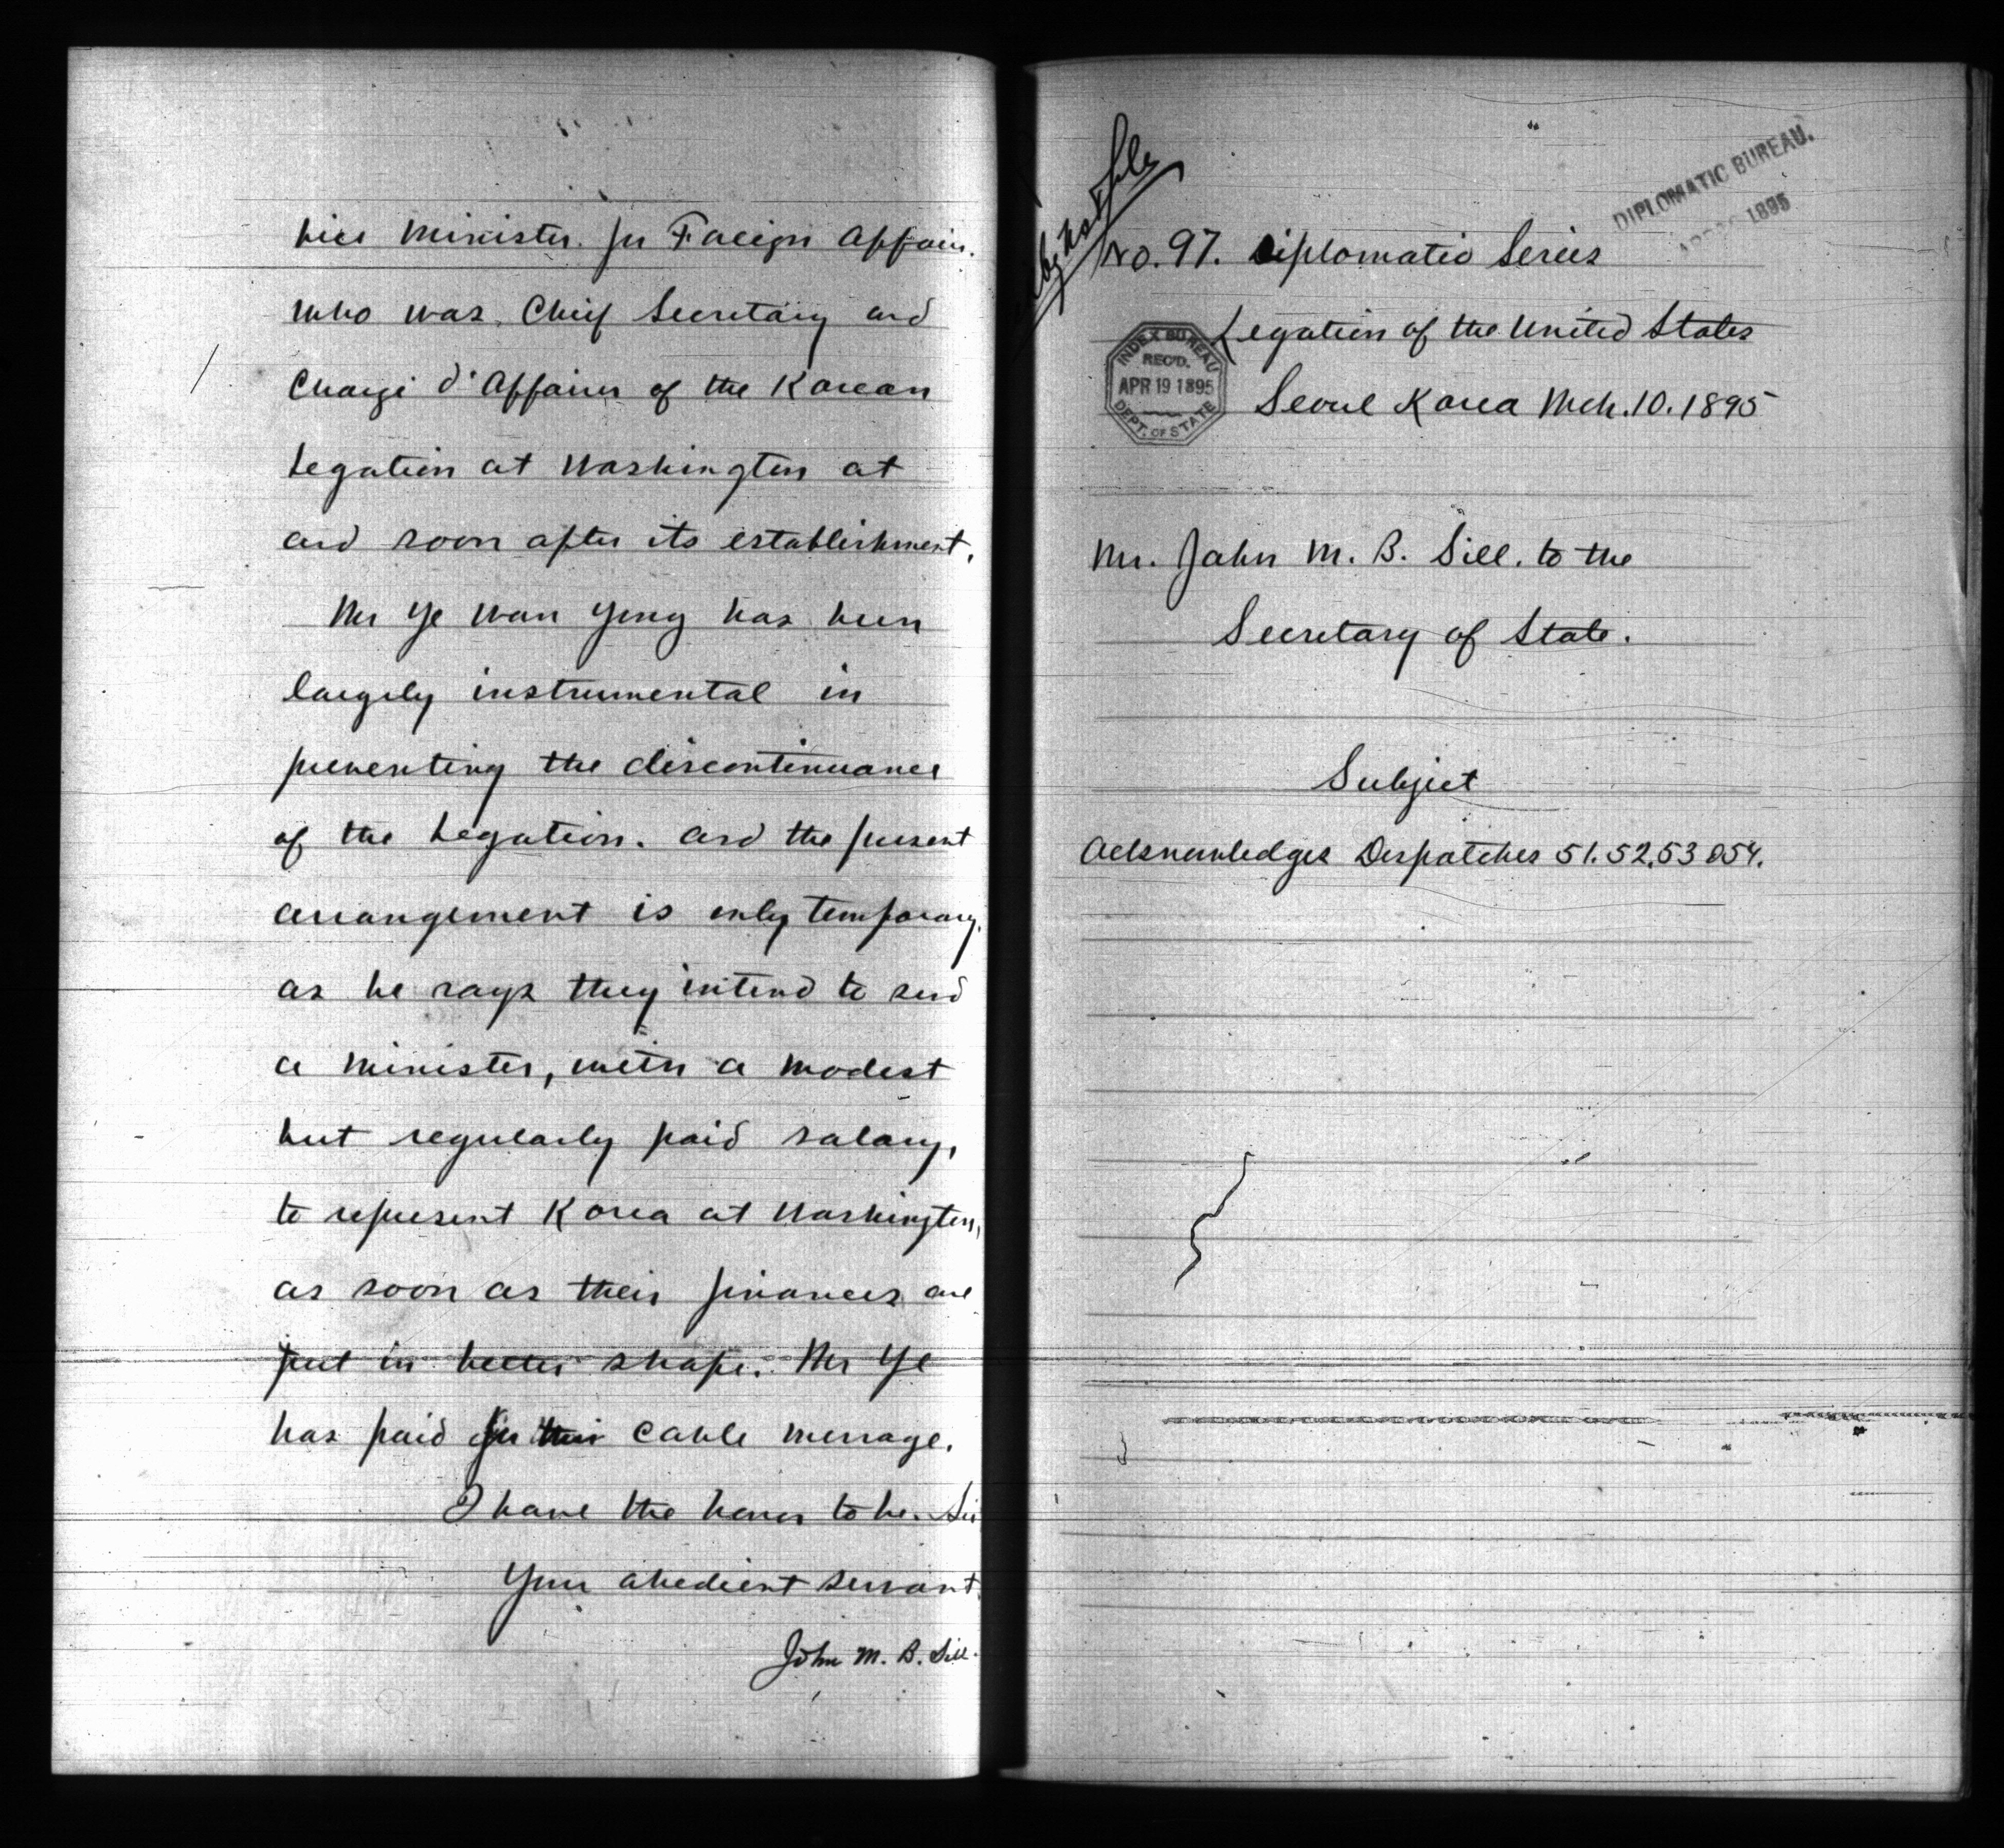 Vice Minister for Foreign Affairs.
who was Chief Secretary and
Chargé d'Affaires of the Korean
Legation at Washington at
and soon after its establishment.
Mr Ye Wan Yong has been
largely instrumental in
preventing the discontinuance
of the Legation. and the present
arrangement is only temporary.
as he says they intend to send
a Minister, with a modest
but regularly paid salary,
to represent Korea at Washington,
as soon as their finances are
put in better shape. Mr Ye
has paid for this cable message.
I have the honor to be. Sir
Your obedient servant
John M. B. Sill.
DIPLOMATIC BUREAU.
1895
No. 97. Diplomatic Series
Legation of the United States
Seoul Korea Mch. 10. 1895
INDEX BUREAU
REC'D.
APR 19 1895
DEPT. OF STATE
Mr. John M. B. Sill. to the
Secretary of State.
Subject
Acknowledges Despatches 51. 52, 53 & 54.